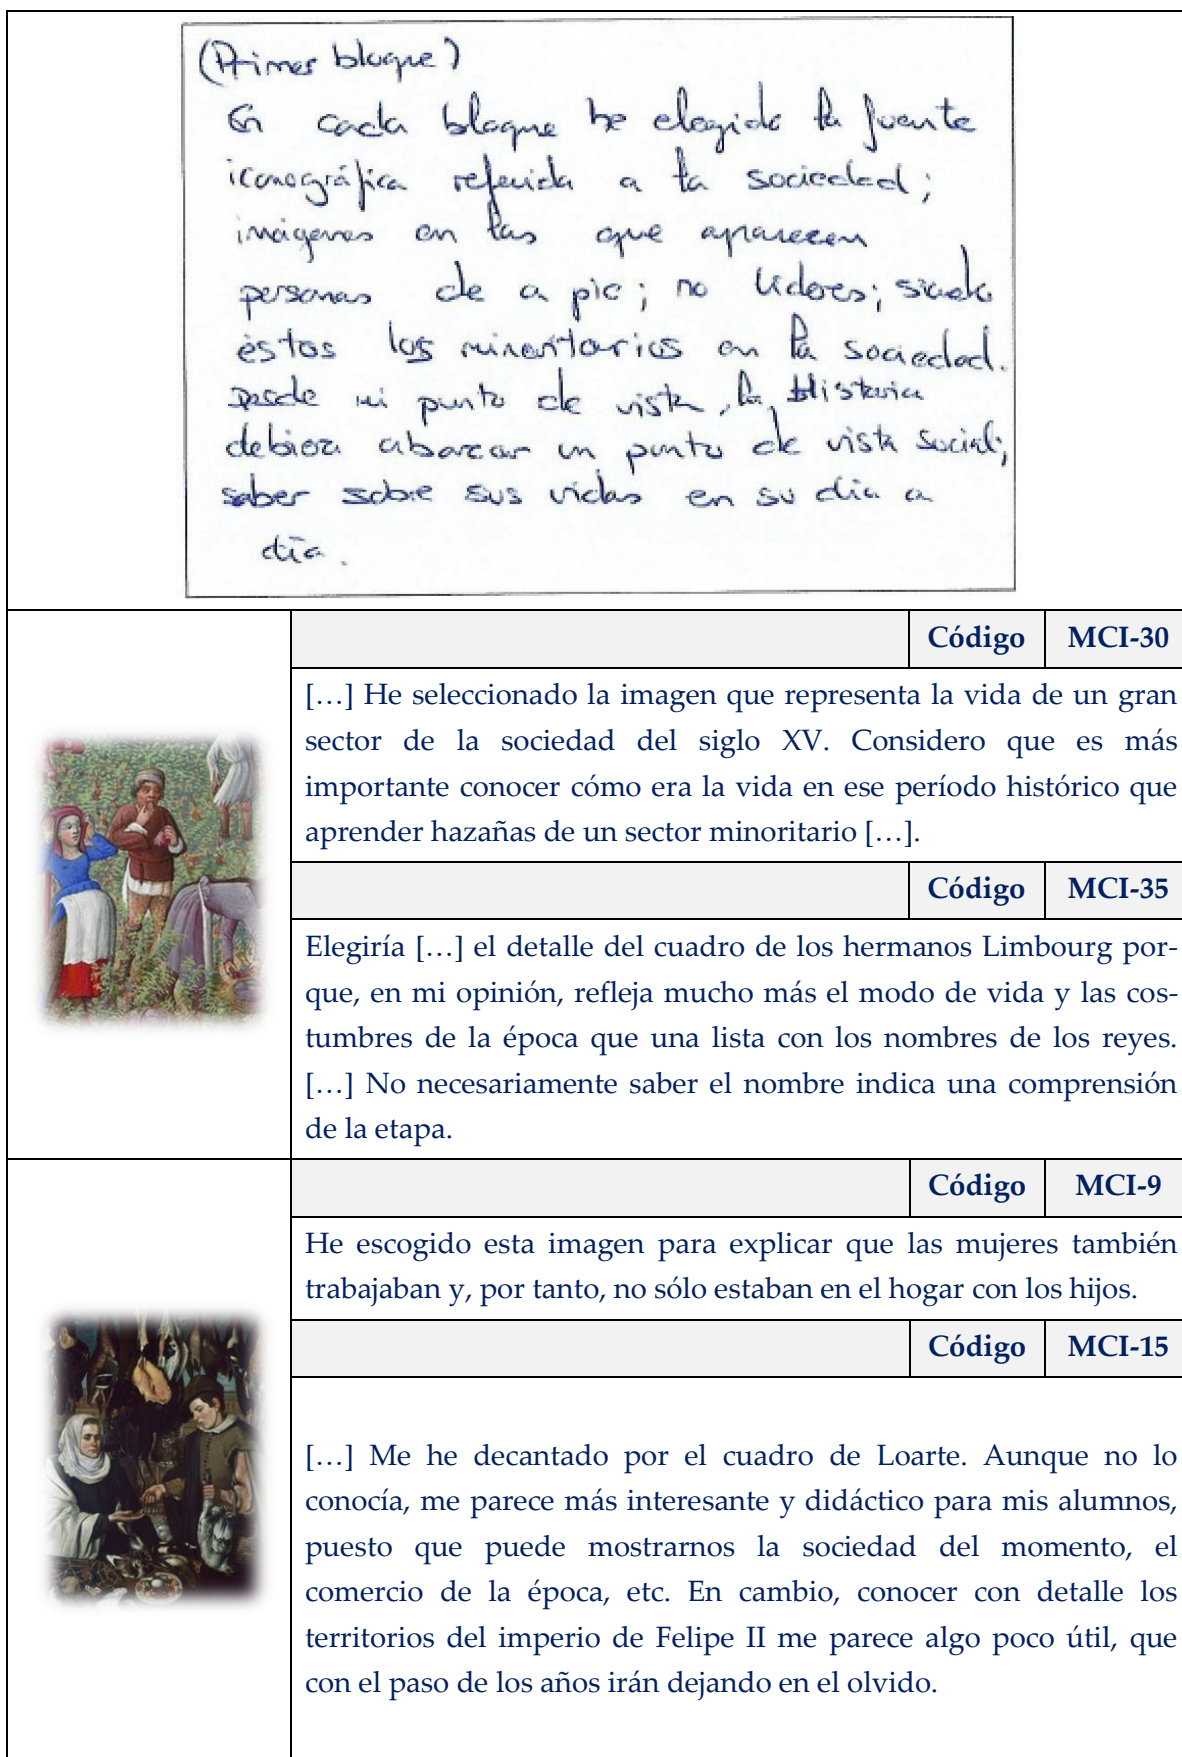 (Primer bloque)
En cada bloque he elegido la fuente
iconográfica referida a la sociedad;
imágenes en las que aparecen
personas de a pie; no líderes; siendo
éstos los minoritarios en la sociedad.
Desde mi punto de vista, la Historia
debiera abarcar un punto de vista social;
saber sobre sus vidas en su día a
día.
Código MCI-30
[…] He seleccionado la imagen que representa la vida de un gran
sector de la sociedad del siglo XV. Considero que es más
importante conocer cómo era la vida en ese período histórico que
aprender hazañas de un sector minoritario […].
Código MCI-35
Elegiría […] el detalle del cuadro de los hermanos Limbourg por-
que, en mi opinión, refleja mucho más el modo de vida y las cos-
tumbres de la época que una lista con los nombres de los reyes.
[…] No necesariamente saber el nombre indica una comprensión
de la etapa.
Código MCI-9
He escogido esta imagen para explicar que las mujeres también
trabajaban y, por tanto, no sólo estaban en el hogar con los hijos.
Código MCI-15
[…] Me he decantado por el cuadro de Loarte. Aunque no lo
conocía, me parece más interesante y didáctico para mis alumnos,
puesto que puede mostrarnos la sociedad del momento, el
comercio de la época, etc. En cambio, conocer con detalle los
territorios del imperio de Felipe II me parece algo poco útil, que
con el paso de los años irán dejando en el olvido.